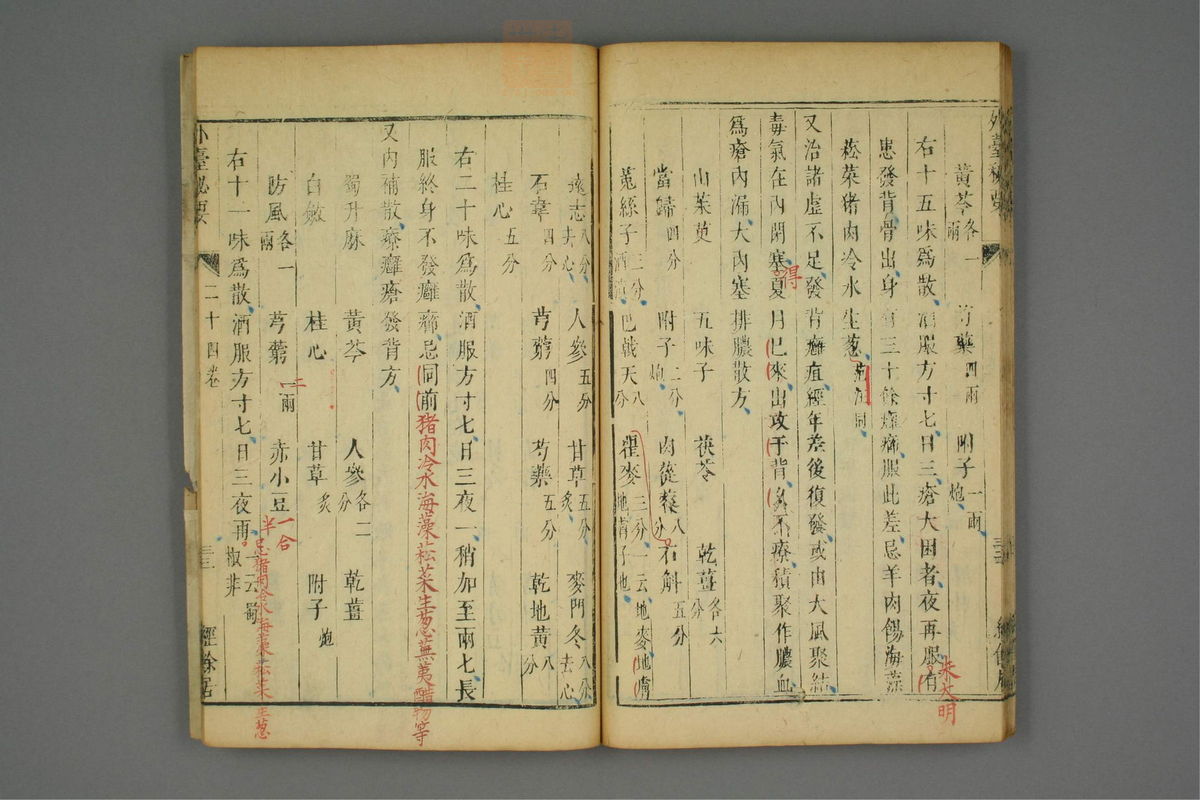 外臺秘要
黃芩各一兩 芍藥四兩 附子一兩炮
右十五味為散酒服方寸七日三瘡大困者夜再服有
患發背骨出身有三十餘癰癤服此差忌羊肉餳海藻
菘菜猪肉冷水生葱
又治諸虛不足發背癰疽經年差後復發或由大風聚結
毒氣在內閉塞夏月已來出攻于背久不療積聚作膿血
得
為瘡內漏大內塞排膿散方
山茱萸 五味子 茯苓 乾薑各六分
當歸四分 附子二分炮 肉蓯蓉八分 石斛五分
菟絲子三分酒 巴戟天八分 瞿麥三分一云地麥地膚子也 地膚
朱大明
遠志八分去心 人參五分 甘草五分炙 麥門冬八分去心
石韋四分 芎藭四分 芍藥五分 乾地黃八分
桂心五分
右二十味為散酒服方寸七日三夜一稍加至兩七長
服終身不發癰癤忌同前猪肉冷水海藻菘菜生葱蕪荑醋物等
又內補散療癰瘡發背方
蜀升麻 黃芩 人參各二分 乾薑
白斂 桂心 甘草炙 附子炮
防風各一兩 芎藭一兩 赤小豆一合半
二
忌猪肉冷水海藻菘菜生葱
右十一味為散酒服方寸七日三夜再一云蜀椒非
外臺秘要 二十四卷 經餘居